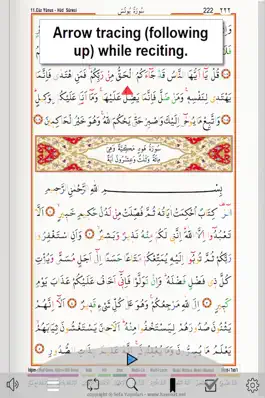 11.Cüz Yûnus - Hûd Sûresi سُورَةُ يُونُسَ 222 ٢٢٢
Arrow tracing (following
up) while reciting.
قُلْ يَٓا اَيُّهَا النَّاسُ قَدْ جَٓاءَكُمُ الْحَقُّ مِنْ رَبِّكُمْ فَمَنِ اهْتَدٰى فَاِنَّمَا
يَهْتَد۪ي لِنَفْسِه۪ وَمَنْ ضَلَّ فَاِنَّمَا يَضِلُّ عَلَيْهَا وَمَٓا اَنَا۬ عَلَيْكُمْ بِوَك۪يلٍ
وَاتَّبِعْ مَا يُوحٰٓى اِلَيْكَ وَاصْبِرْ حَتّٰى يَحْكُمَ اللّٰهُ وَهُوَ خَيْرُ الْحَاكِم۪ينَ
سُورَةُ هُودٍ مَكِّيَّةٌ وَهِيَ
مِائَةٌ وَثَلٰثٌ وَعِشْرُونَ اٰيَةً
بِسْمِ اللّٰهِ الرَّحْمٰنِ الرَّح۪يمِ
الٓرٰ كِتَابٌ اُحْكِمَتْ اٰيَاتُهُ ثُمَّ فُصِّلَتْ مِنْ لَدُنْ حَك۪يمٍ خَب۪يرٍ اَلَّا
تَعْبُدُٓوا اِلَّا اللّٰهَ اِنَّن۪ي لَكُمْ مِنْهُ نَذ۪يرٌ وَبَش۪يرٌ وَاَنِ اسْتَغْفِرُوا
رَبَّكُمْ ثُمَّ تُوبُٓوا اِلَيْهِ يُمَتِّعْكُمْ مَتَاعًا حَسَنًا اِلٰٓى اَجَلٍ مُسَمًّى وَيُؤْتِ
كُلَّ ذ۪ي فَضْلٍ فَضْلَهُ وَاِنْ تَوَلَّوْا فَاِنّ۪ٓي اَخَافُ عَلَيْكُمْ عَذَابَ يَوْمٍ
كَب۪يرٍ اِلَى اللّٰهِ مَرْجِعُكُمْ وَهُوَ عَلٰى كُلِّ شَيْءٍ قَد۪يرٌ اَلَٓا اِنَّهُمْ
يَثْنُونَ صُدُورَهُمْ لِيَسْتَخْفُوا مِنْهُ اَلَا ح۪ينَ يَسْتَغْشُونَ ثِيَابَهُمْ
يَعْلَمُ مَا يُسِرُّونَ وَمَا يُعْلِنُونَ اِنَّهُ عَل۪يمٌ بِذَاتِ الصُّدُورِ